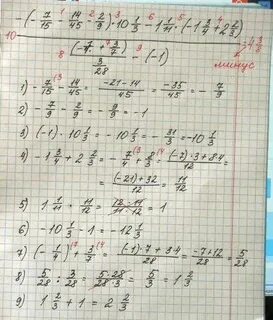 -(-7/15 - 14/45 - 2/3) · 10 1/3 - 1 1/11 · (-1 3/4 + 2 2/3)
10
(-1/4 + 3/7) / (3/28) - (-1)
минус
1) -7/15 - 14/45 = (-21-14)/45 = -35/45 = -7/9
2) -7/9 - 2/9 = -9/9 = -1
3) (-1) · 10 1/3 = -10 1/3 = -31/3 = -10 1/3
4) -1 3/4 + 2 2/3 = -7/4 + 8/3 = ((-7)·3+8·4)/12 =
= ((-21)+32)/12 = 11/12
5) 1 1/11 · 11/12 = (12·11)/(11·12) = 1
6) -10 1/3 - 1 = -12 1/3
7) (-1/4) + 3/7 = ((-1)·7+3·4)/28 = (-7+12)/28 = 5/28
8) 5/28 : 3/28 = (5·28)/(28·3) = 5/3 = 1 2/3
9) 1 2/3 + 1 = 2 2/3